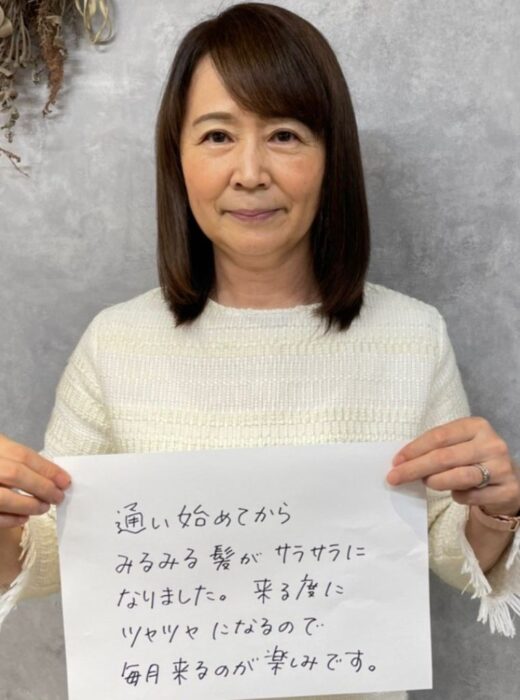 通い始めてから
みるみる髪がサラサラに
なりました。来る度に
ツヤツヤになるので
毎月来るのが楽しみです。